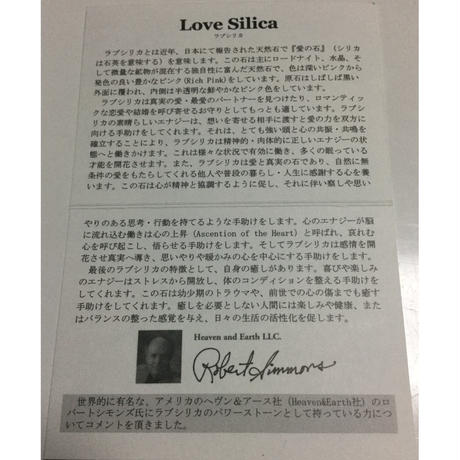 Love Silica
ラブシリカ
ラブシリカとは近年、日本にて報告された天然石で『愛の石』(シリカ
は石英を意味する)を意味します。この石は主にロードナイト、水晶、そ
して微量な鉱物が混在する独自性に富んだ天然石で、色は深いピンクから
発色の良い豊かなピンク(Rich Pink)をしています。原石はしばしば黒い
外面に覆われ、内側は半透明な鮮やかなピンク色をしています。
ラブシリカは真実の愛・最愛のパートナーを見つけたり、ロマンティッ
クな恋愛や結婚を呼び寄せるお守りとしてもっとも適しています。ラブシ
リカの素晴らしいエナジーは、想いを寄せる相手に渡すと愛の力を双方に
向ける手助けをしてくれます。それは、とても強い頭と心の共振・共鳴を
確立することにより、ラブシリカは精神的・肉体的に正しいエナジーの状
態へと働きかけます。これは様々な状況で有効に働き、多くの眠っている
才能を開花させます。また、ラブシリカは愛と真実の石であり、自然に無
条件の愛をもたらしてくれる他人や普段の暮らし・人生に感謝する心を養
います。この石は心が精神と協調するように促し、それに伴い察しや思い
やりのある思考・行動を持てるような手助けをします。心のエナジーが脳
に流れ込む働きは心の上昇(Ascention of the Heart)と呼ばれ、哀れむ
心を呼び起こし、悟らせる手助けをします。そしてラブシリカは感情を開
花させ真実へ導き、思いやりや暖かみの心を中心にする手助けをします。
最後のラブシリカの特徴として、自身の癒しがあります。喜びや楽しみ
のエナジーはストレスから開放し、体のコンディションを整える手助けを
してくれます。この石は幼少期のトラウマや、前世での心の傷までも癒す
手助けをしてくれます。癒しを必要としない人間には楽しみや健康、また
はバランスの整った感覚を与え、日々の生活の活性化を促します。
Heaven and Earth LLC.
Robert Simmons
世界的に有名な、アメリカのヘヴン&アース社(Heaven&Earth社)のロ
バートシモンズ氏にラブシリカのパワーストーンとして持っている力につ
いてコメントを頂きました。